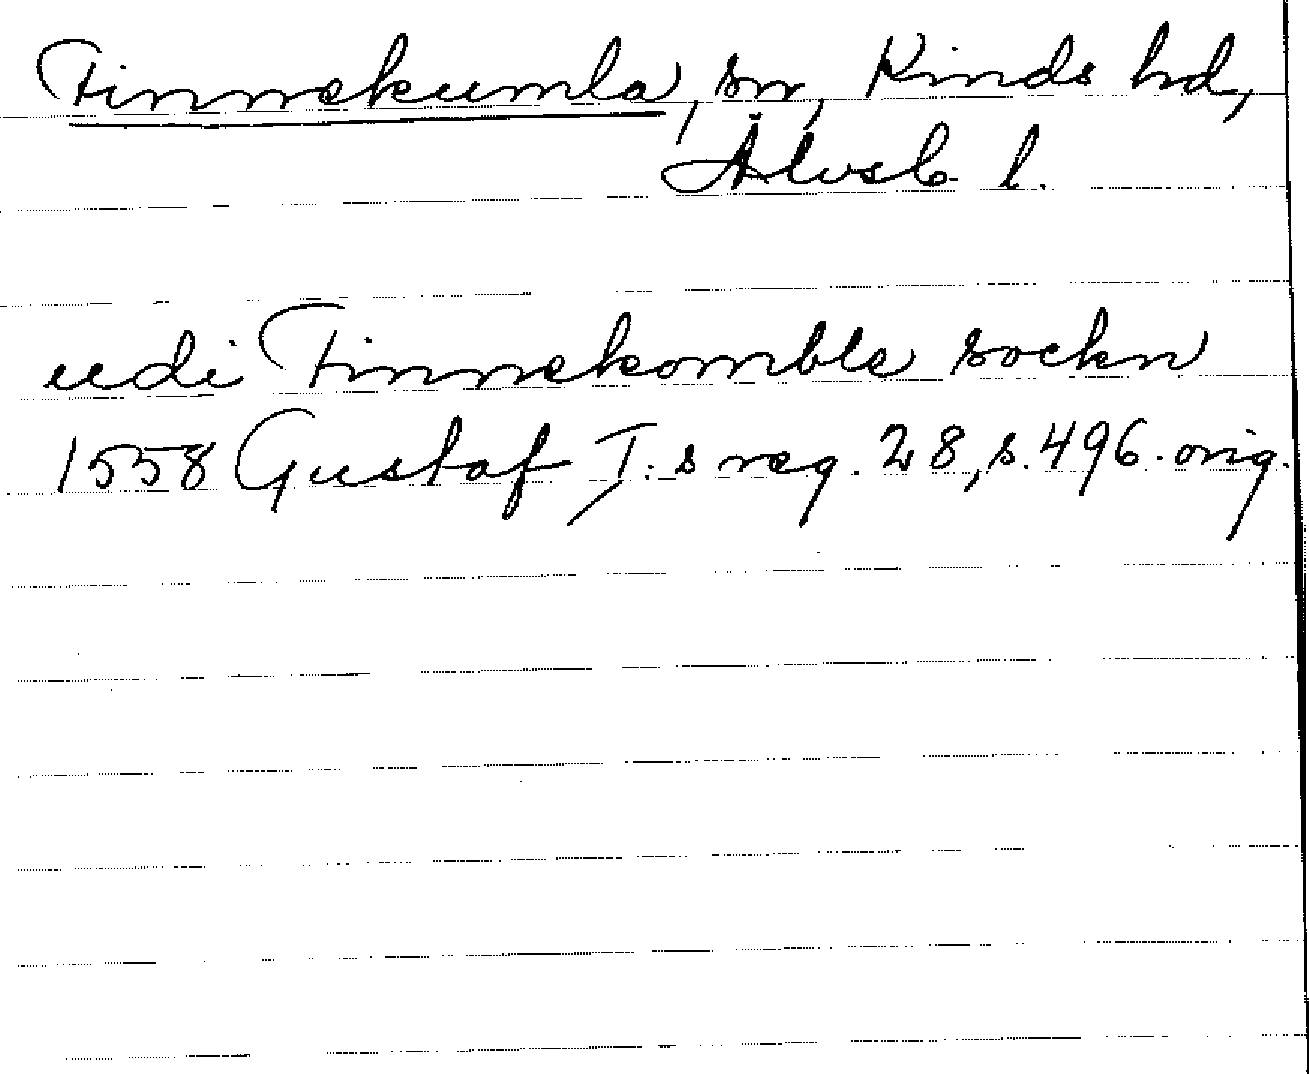 Finnekumla, sn, Kinds hd,
Älvsb. l.
udi Finnekomble sockn
1558 Gustaf I:s reg. 28, s. 496. orig.